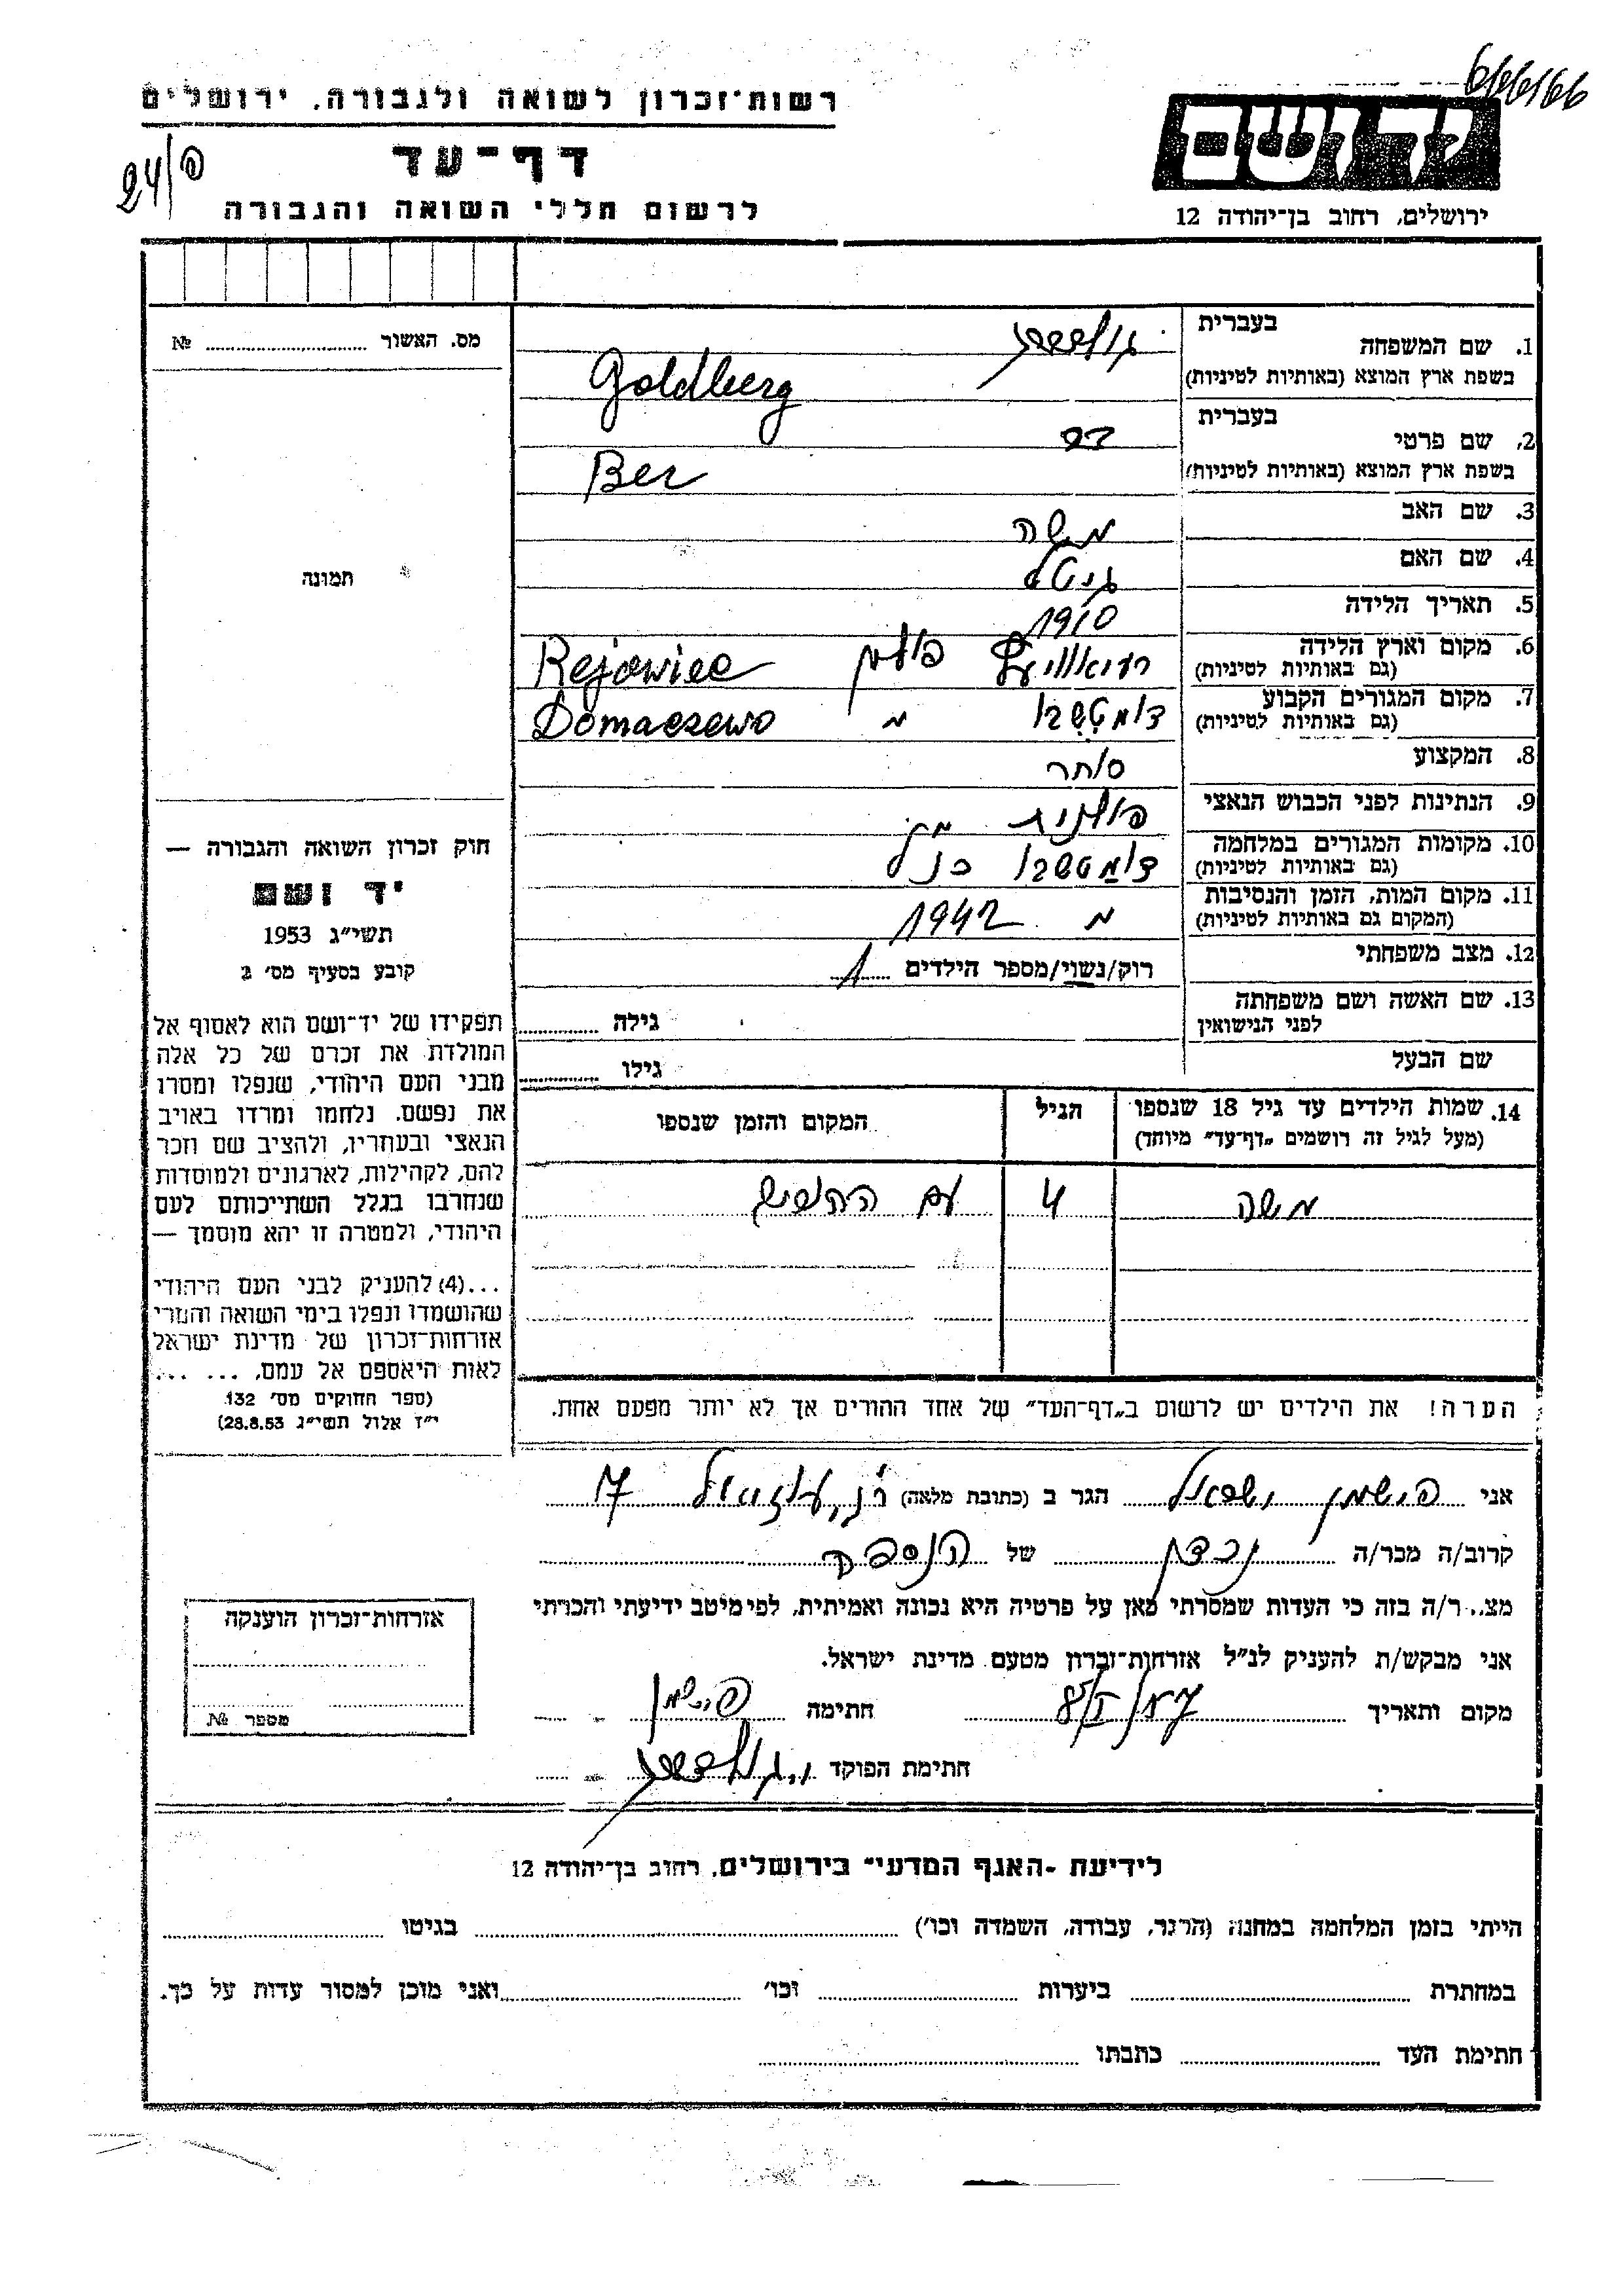 6/66/66
רשות־זכרון לשואה ולגבורה, ירושלים
דף־עד
24/פ
לרשום חללי השואה והגבורה
ידושם
ירושלים, רחוב בן־יהודה 12
מס. האשור № 
תמונה
חוק זכרון השואה והגבורה —
יד ושם
תשי״ג 1953
קובע בסעיף מס׳ 2
תפקידו של יד־ושם הוא לאסוף אל
המולדת את זכרם של כל אלה
מבני העם היהודי, שנפלו ומסרו
את נפשם. נלחמו ומרדו באויב
הנאצי ובעוזריו, ולהציב שם וזכר
להם, לקהילות, לארגונים ולמוסדות
שנחרבו בגלל השתייכותם לעם
היהודי, ולמטרה זו יהא מוסמך —
...(4) להעניק לבני העם היהודי
שהושמדו ונפלו בימי השואה והמרי
אזרחות־זכרון של מדינת ישראל
לאות היאספם אל עמם. ... ...
(ספר החוקים מס׳ 132
י״ז אלול תשי״ג 28.8.53)
1. שם המשפחה
בעברית גולדברג
בשפת ארץ המוצא (באותיות לטיניות) Goldberg
2. שם פרטי
בעברית בר
בשפת ארץ המוצא (באותיות לטיניות) Ber
3. שם האב משה
4. שם האם גיטל
5. תאריך הלידה 1910
6. מקום וארץ הלידה פולין
(גם באותיות לטיניות) Rejowiec
7. מקום המגורים הקבוע
(גם באותיות לטיניות) Domaczewo
8. המקצוע סוחר
9. הנתינות לפני הכבוש הנאצי פולנית
10. מקומות המגורים במלחמה
(גם באותיות לטיניות) כנ״ל
11. מקום המות, הזמן והנסיבות
(המקום גם באותיות לטיניות) 1942
12. מצב משפחתי רוק/נשוי/מספר הילדים 1
13. שם האשה ושם משפחתה
לפני הנישואין גילה
שם הבעל גילו
14. שמות הילדים עד גיל 18 שנספו
(מעל לגיל זה רושמים „דף־עד״ מיוחד)
הגיל
המקום והזמן שנספו
משה 4 עם
הערה! את הילדים יש לרשום ב„דף־העד״ של אחד ההורים אך לא יותר מפעם אחת.
אני פישמן ישראל הגר ב (כתובת מלאה) 17
קרוב/ה מכר/ה נכדן של הנספה
מצ...ר/ה בזה כי העדות שמסרתי כאן על פרטיה היא נכונה ואמיתית, לפי מיטב ידיעתי והכרתי
אני מבקש/ת להעניק לנ״ל אזרחות־זכרון מטעם מדינת ישראל.
מקום ותאריך חתימה פישמן
חתימת הפוקד י. גולדברג
אזרחות־זכרון הוענקה
מספר №
לידיעת ״האגף המדעי״ בירושלים, רחוב בן־יהודה 12
הייתי בזמן המלחמה במחנה (הרגר, עבודה, השמדה וכו׳) בגיטו
במחתרת ביערות וכו׳ ואני מוכן למסור עדות על כך.
חתימת העד כתבתו